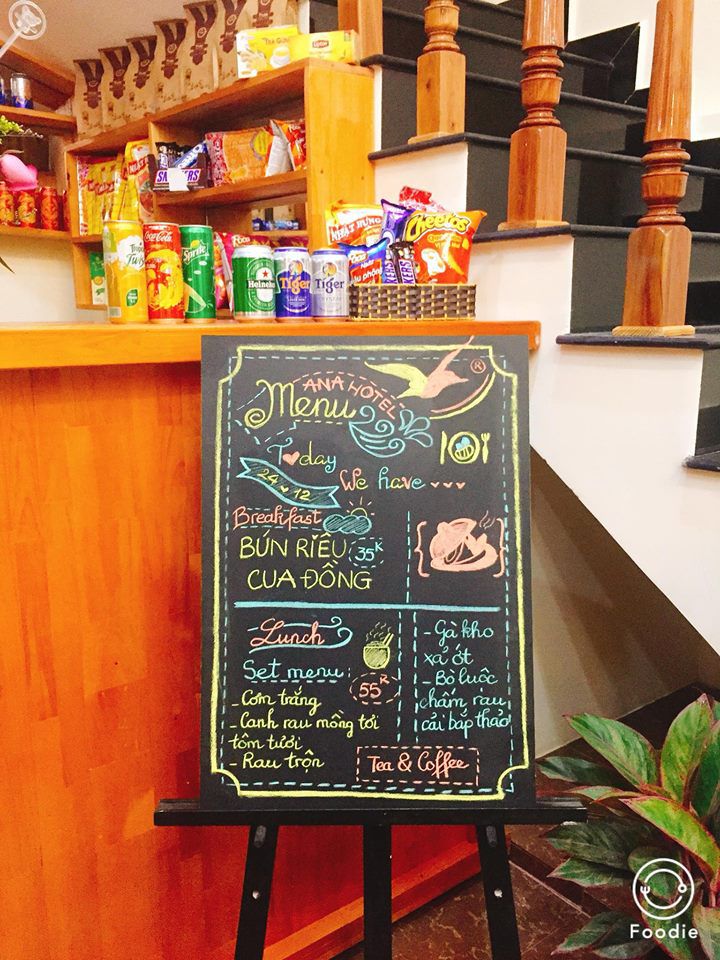 Trà Gừng
Lipton
SNICKERS
Twister
Coca-Cola
Sprite
Poca
Heineken
Tiger
Tiger
NHẬT HƯNG
Cheetos
ANA HOTEL
Menu
®
Today
24 12
We have
Breakfast
BÚN RIÊU 35K
CUA ĐỒNG
Lunch
Set menu:
55K
- Cơm trắng
- Canh rau mồng tơi
tôm tươi
- Rau trộn
- Gà kho
xả ớt
- Bò luộc
chấm rau
cải bắp thảo
Tea & Coffee
Foodie